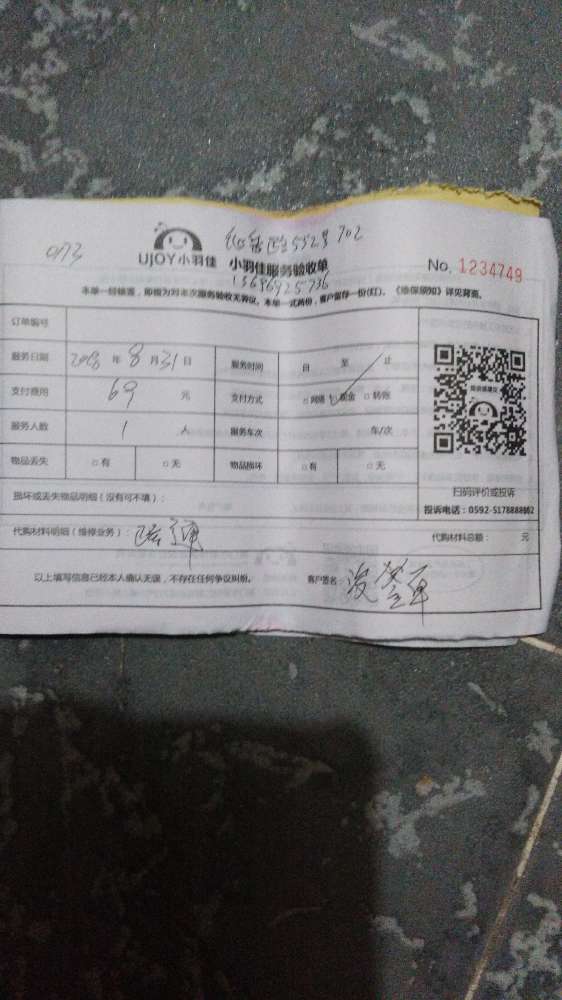 073
552号702
UJOY小羽佳 小羽佳服务验收单 No. 1234749
13696925736
本单一经结签,即视为对本次服务验收无异议。本单一式两份,客户留存一份(红)。《维保须知》详见背面。
订单编号
服务日期 2018 年 8 月 31 日 服务时间 自 至 止
支付费用 69 元 支付方式 □网络 □现金 □转账
服务人数 1 人 服务车次 车/次
物品丢失 □有 □无 物品损坏 □有 □无
扫码评价或投诉
损坏或丢失物品明细(没有可不填):
投诉电话:0592-5178888802
代购材料明细(维修业务): 代购材料总额: 元
以上填写信息已经本人确认无误,不存在任何争议纠纷。 客户签名: